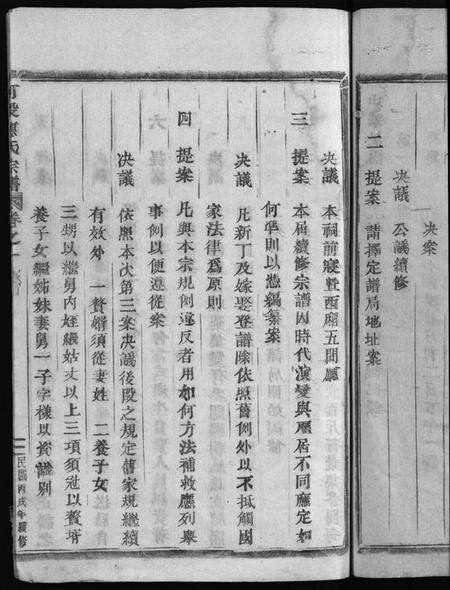 决案
决議　公議續修
二　提案　請擇定譜局地址案
决議　本祠前寢暨西廂五間廳
三　提案　本屆續修宗譜因時代演變與歷居不同應定如
何準則以憑編纂案
决議　凡新丁及嫁娶登譜除依照舊例外以不抵觸國
家法律爲原則
四　提案　凡與本宗規例違反者用如何方法補救應列舉
事例以便遵從案
决議　依照本次第三案决議後段之規定舊家規繼續
有效外　一贅婿須從妻姓　二養子女
三甥以繼舅內姪繼姑丈以上三項須冠以贅壻
養子女繼姊妹妻舅一子字樣以資識别
氏宗譜
民國丙戌年續修